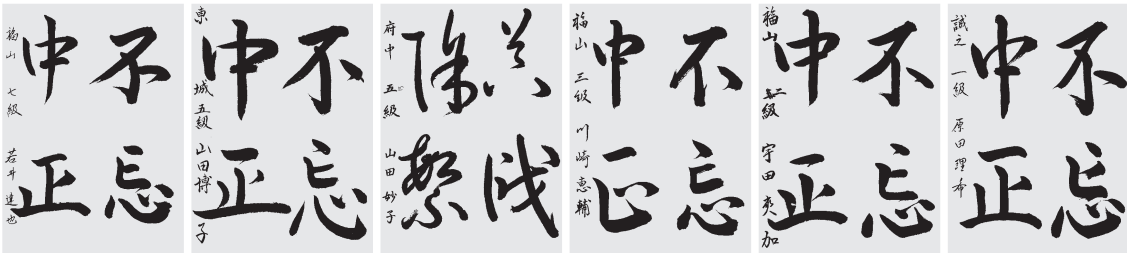 不忘
中正
福山 七級 若井 達也
不忘
中正
東城 五級 山田博子
除繁
府中 五級 山田妙子
不忘
中正
福山 三級 川崎恵輔
不忘
中正
福山 級 宇田 加
不忘
中正
誠之 一級 原田理布